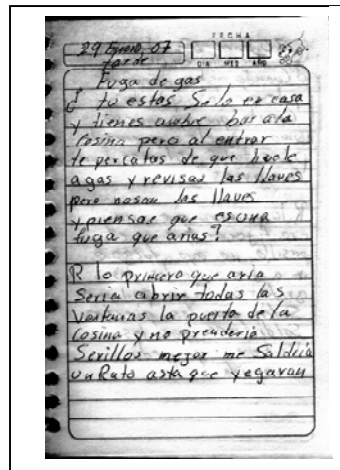 29 Enero, 07
tarde
FECHA
DIA MES AÑO
Fuga de gas
¿ tu estas Solo en casa
y tienes ambre bas a la
Cosina pero al entrar
te percatas de que huele
a gas y revisas las llaves
pero no son las llaves
y piensas que es una
fuga que arias?
R lo primero que aria
Seria abrir todas las
Ventanas la puerta de la
Cosina y no prenderia
Serillos mejor me Saldria
un Rato asta que yegaran